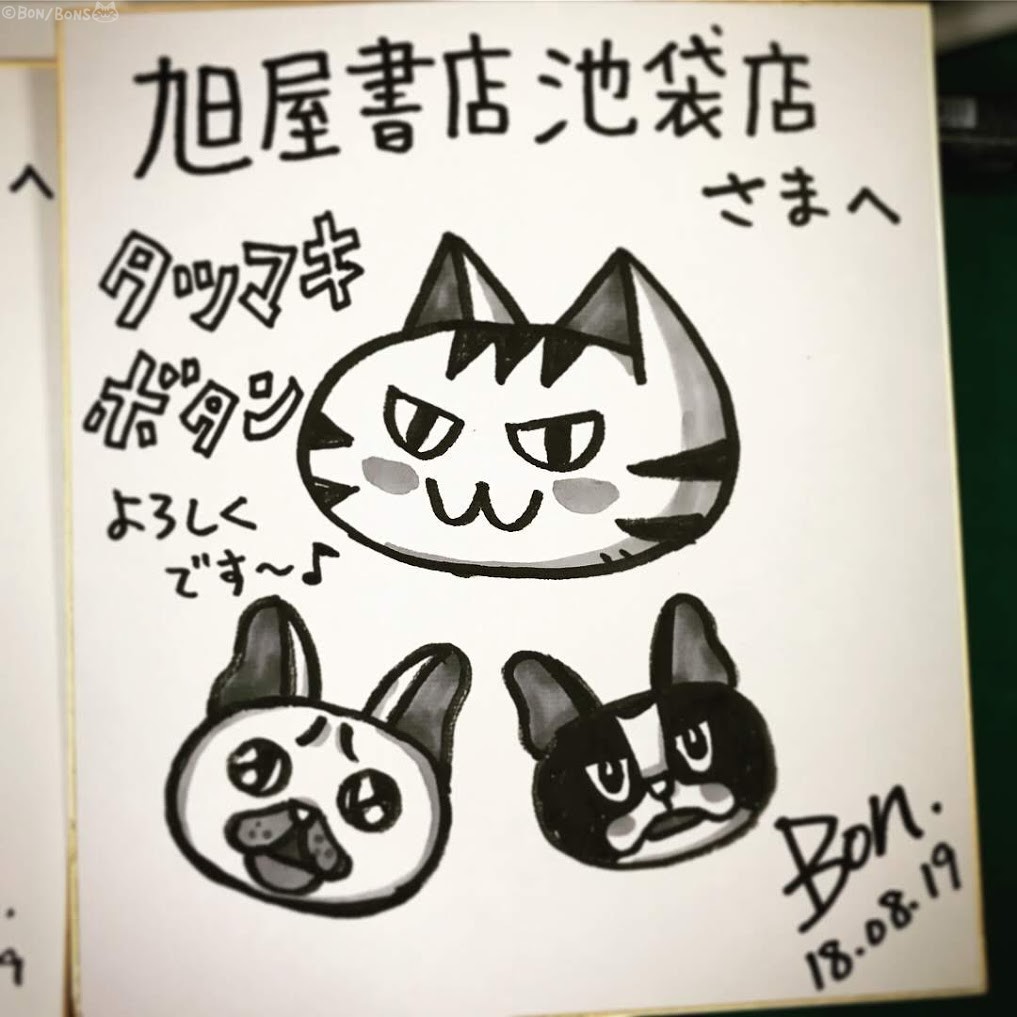 ©BON/BONS
旭屋書店池袋店
さまへ
へ
タツマキ
ボタン
よろしく
です〜♪
Bon.
18.08.19
9